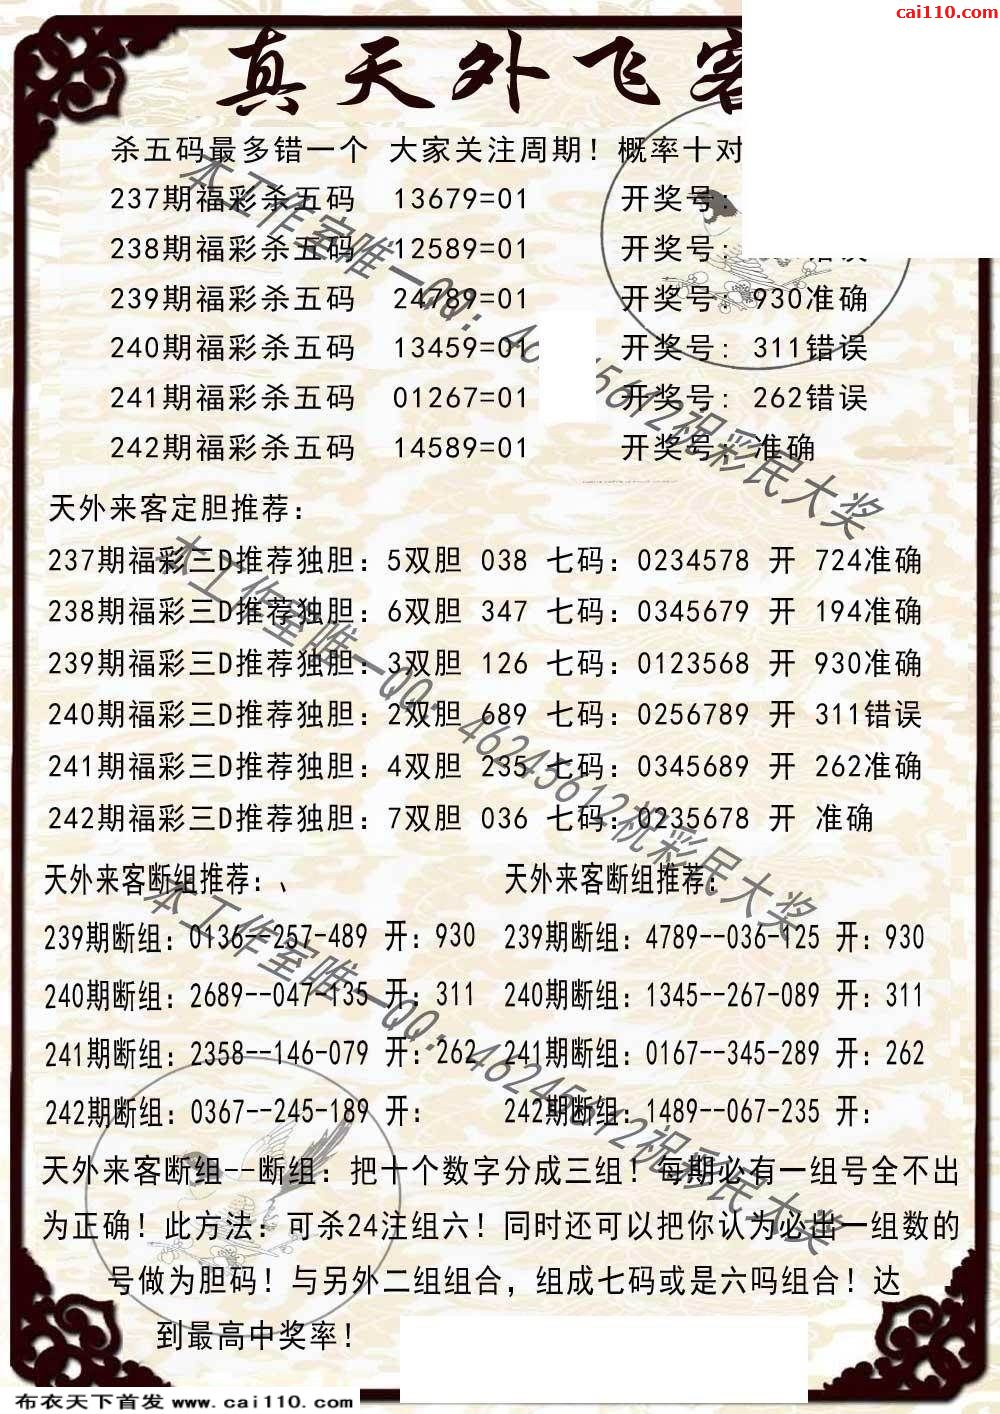 cai110.com
真天外飞客
杀五码最多错一个 大家关注周期！概率十对
237期福彩杀五码 13679=01 开奖号：
238期福彩杀五码 12589=01 开奖号： 错误
239期福彩杀五码 24789=01 开奖号：930准确
240期福彩杀五码 13459=01 开奖号：311错误
241期福彩杀五码 01267=01 开奖号：262错误
242期福彩杀五码 14589=01 开奖号：准确
天外来客定胆推荐：
237期福彩三D推荐独胆：5双胆 038 七码：0234578 开 724准确
238期福彩三D推荐独胆：6双胆 347 七码：0345679 开 194准确
239期福彩三D推荐独胆：3双胆 126 七码：0123568 开 930准确
240期福彩三D推荐独胆：2双胆 689 七码：0256789 开 311错误
241期福彩三D推荐独胆：4双胆 235 七码：0345689 开 262准确
242期福彩三D推荐独胆：7双胆 036 七码：0235678 开 准确
天外来客断组推荐：、 天外来客断组推荐：
239期断组：0136--257-489 开：930 239期断组：4789--036-125 开：930
240期断组：2689--047-135 开：311 240期断组：1345--267-089 开：311
241期断组：2358--146-079 开：262 241期断组：0167--345-289 开：262
242期断组：0367--245-189 开： 242期断组：1489--067-235 开：
天外来客断组--断组：把十个数字分成三组！每期必有一组号全不出
为正确！此方法：可杀24注组六！同时还可以把你认为必出一组数的
号做为胆码！与另外二组组合，组成七码或是六吗组合！达
到最高中奖率！
本工作室唯一QQ：46245612祝彩民大奖
本工作室唯一QQ：46245612祝彩民大奖
本工作室唯一QQ：46245612祝彩民大奖
布衣天下首发 www.cai110.com